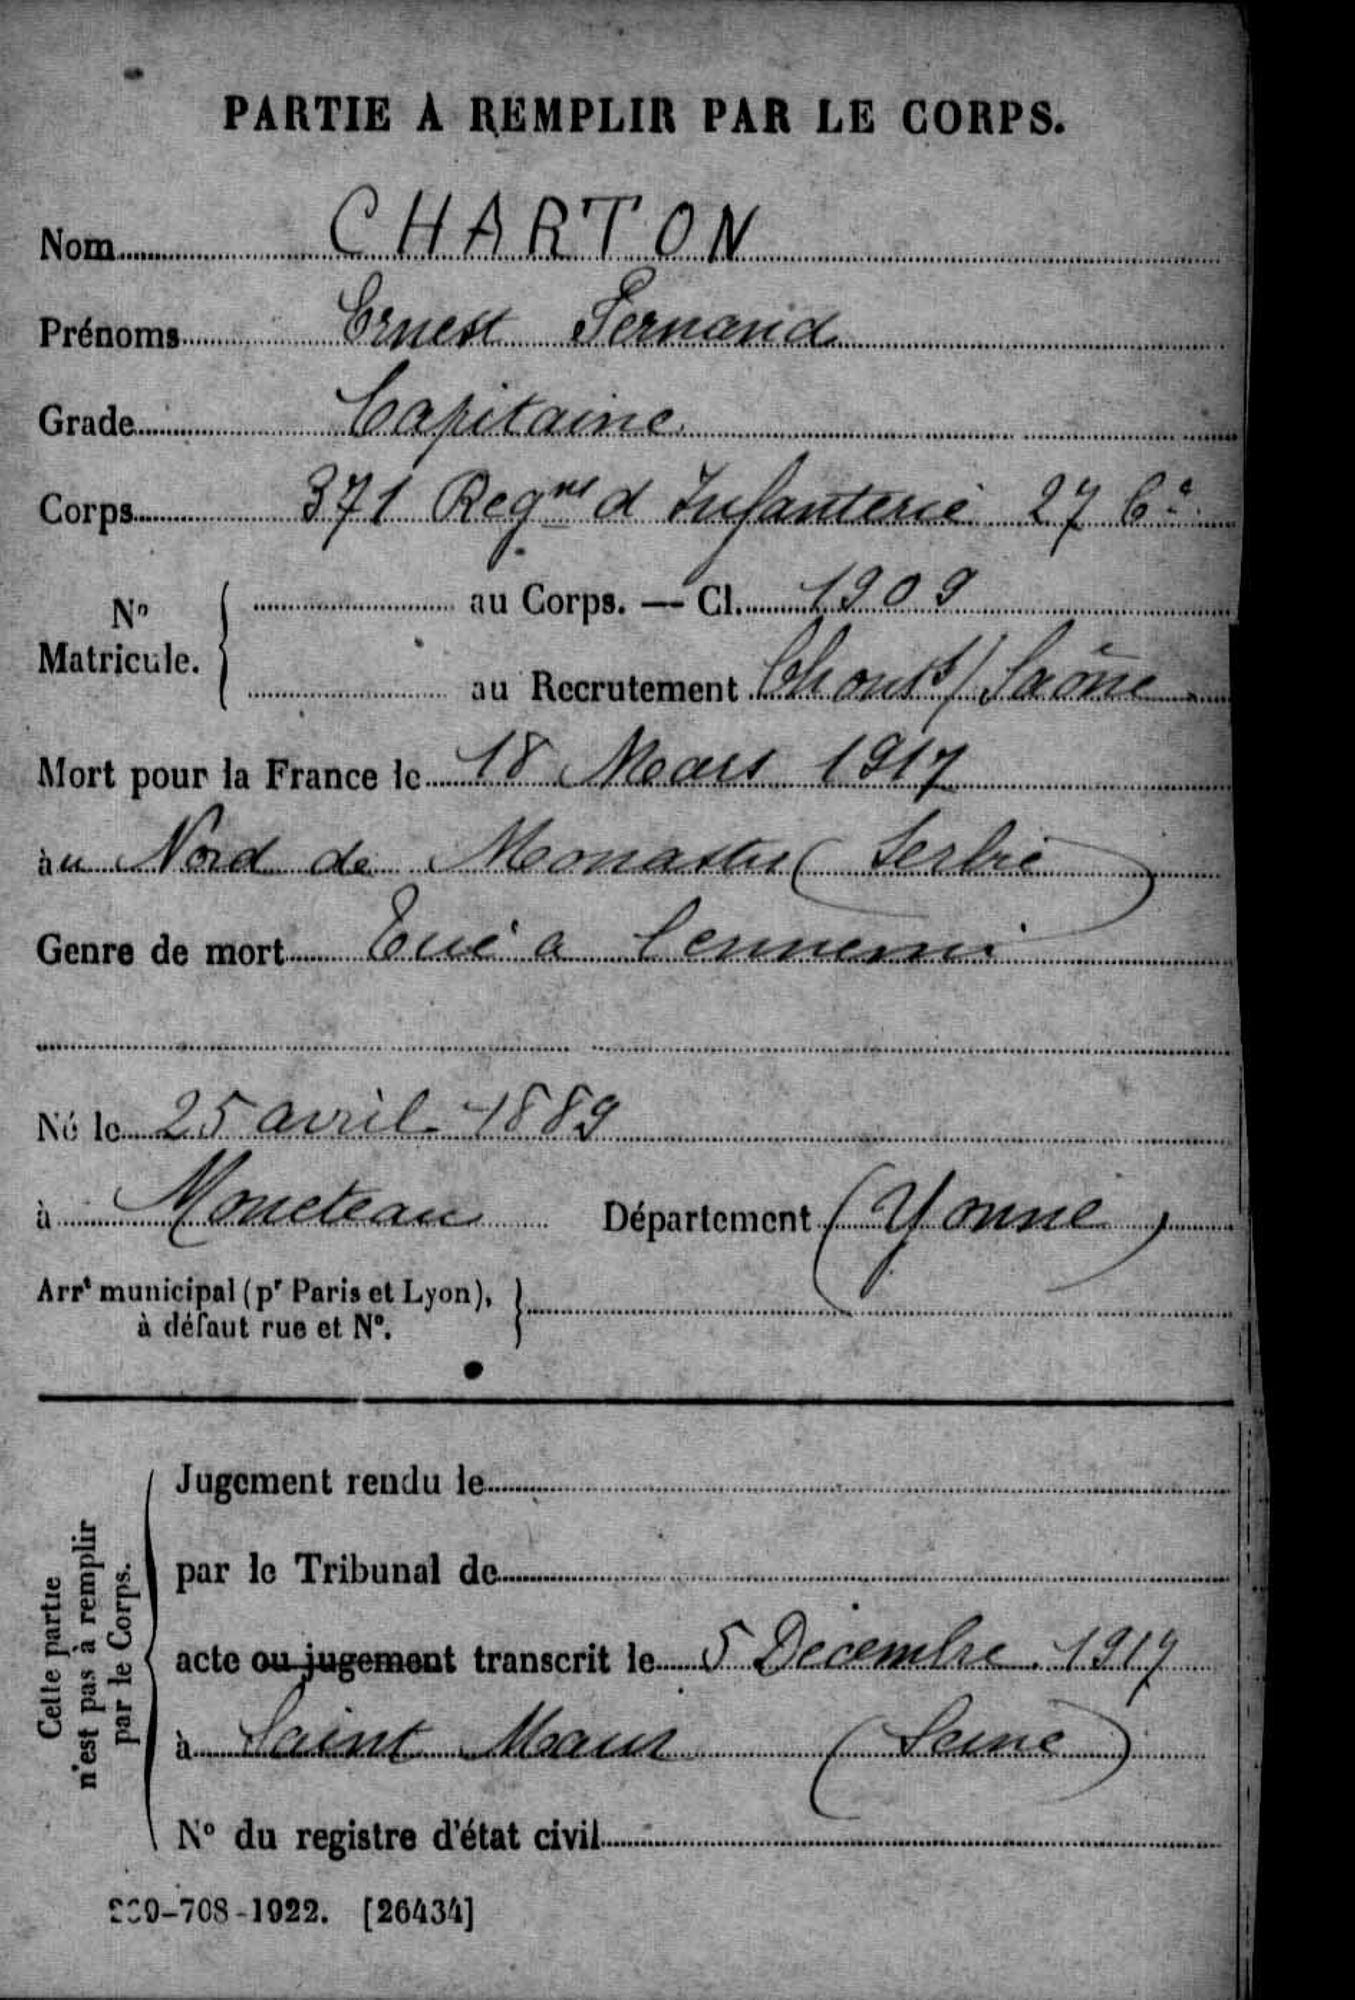 PARTIE À REMPLIR PAR LE CORPS.
Nom CHARTON
Prénoms Ernest Fernand
Grade Capitaine
Corps 371 Regnt d Infanterie 27 Cie
No Matricule. { au Corps. — Cl. 1909
au Recrutement / Saône
Mort pour la France le 18 Mars 1917
àu Nord de Monastir (Serbie)
Genre de mort Tué à l'ennemi
Né le 25 avril 1889
à Moneteau Département (Yonne)
Arrt municipal (pr Paris et Lyon),
à défaut rue et No.
Cette partie
n'est pas à remplir
par le Corps.
Jugement rendu le
par le Tribunal de
acte ou jugement transcrit le 5 Décembre 1917
à Saint Maur (Seine)
No du registre d'état civil
-708-1922. [26434]